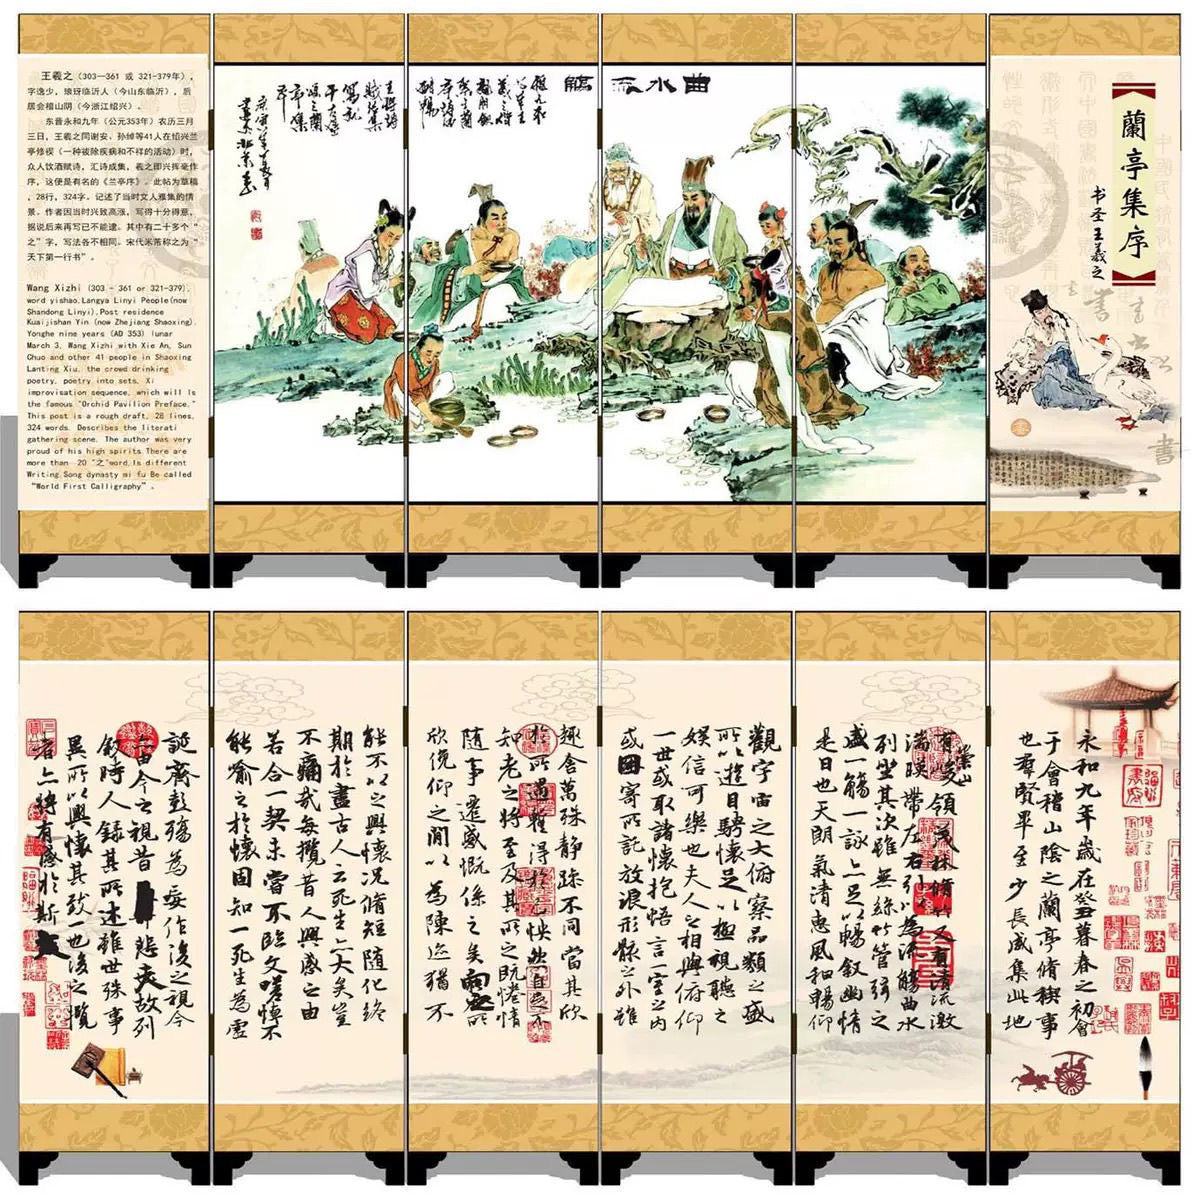 王羲之（303—361 或 321-379年），
字逸少，琅玡临沂人（今山东临沂），后
居会稽山阴（今浙江绍兴）。
东晋永和九年（公元353年）农历三月
三日，王羲之同谢安、孙绰等41人在绍兴兰
亭修禊（一种被除疾病和不祥的活动）时，
众人饮酒赋诗，汇诗成集，羲之即兴挥毫作
序，这便是有名的《兰亭序》。此帖为草稿，
28行，324字。记述了当时文人雅集的情
景。作者因当时兴致高涨，写得十分得意，
据说后来再写已不能逮。其中有二十多个“
之”字，写法各不相同。宋代米芾称之为“
天下第一行书”。
Wang Xizhi (303 - 361 or 321-379),
word yishao,Langya Linyi People(now
Shandong Linyi),Post residence
Kuaijishan Yin (now Zhejiang Shaoxing).
Yonghe nine years (AD 353) lunar
March 3, Wang Xizhi with Xie An, Sun
Chuo and other 41 people in Shaoxing
Lanting Xiu, the crowd drinking
poetry, poetry into sets, Xi
improvisation sequence, which will Is
the famous "Orchid Pavilion Preface."
This post is a rough draft, 28 lines,
324 words. Describes the literati
gathering scene. The author was very
proud of his high spirits.There are
more than 20 "之"word,Is different
Writing.Song dynasty mi fu Be called
"World First Calligraphy".
曲水流觴
蘭亭集序
书圣王羲之
永和九年歲在癸丑暮春之初會
于會稽山陰之蘭亭脩稧事
也羣賢畢至少長咸集此地
有崇山
峻領茂林脩竹又有清流激
湍暎帶左右引以為流觴曲水
列坐其次雖無絲竹管弦之
盛一觴一詠亦足以暢敘幽情
是日也天朗氣清惠風和暢仰
觀宇宙之大俯察品類之盛
所以遊目騁懷足以極視聽之
娛信可樂也夫人之相與俯仰
一世或取諸懷抱悟言一室之內
或因寄所託放浪形骸之外雖
趣舍萬殊靜躁不同當其欣
於所遇暫得於己怏然自足不
知老之將至及其所之既惓情
隨事遷感慨係之矣向之所
欣俛仰之間以為陳迹猶不
能不以之興懷況脩短隨化終
期於盡古人云死生亦大矣豈
不痛哉每攬昔人興感之由
若合一契未嘗不臨文嗟悼不
能喻之於懷固知一死生為虛
誕齊彭殤為妄作後之視今
亦由今之視昔悲夫故列
敘時人錄其所述雖世殊事
異所以興懷其致一也後之攬
者亦將有感於斯文